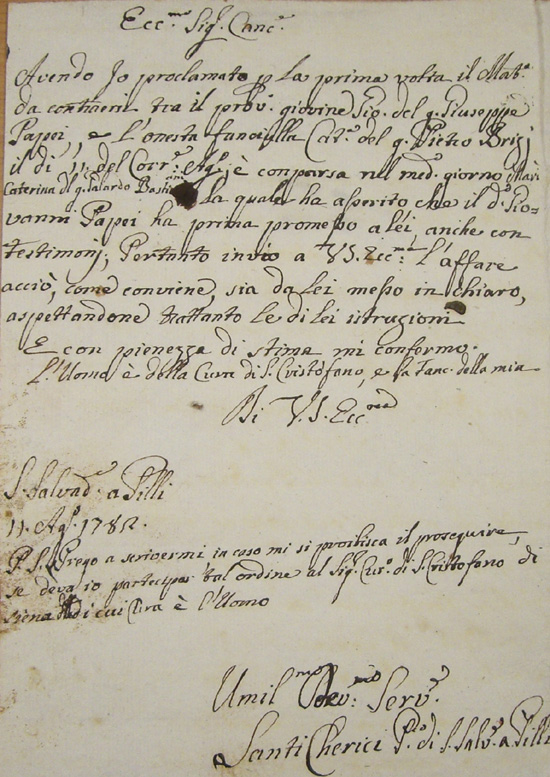 Ecc.mo Sig.r Canc.e
Avendo Jo proclamato p la prima volta il Mat.o
da contraersi tra il prov.o giovine Gio. del q. Giuseppe
Papei, e l'onesta fanciulla Cat.a del q. Pietro Brizi
il dì 11. del Corr.e Ag.o, è comparsa nel med.o giorno Mari
Caterina di q. Galardo
la quale ha asserito che il d.o Gio=
vanni Papei ha prima promesso a lei anche con
testimonj; Pertanto invio a V.S. Ecc.ma l'affare
acciò, come conviene, sia da lei messo in chiaro,
aspettandone trattanto le di lei istruzioni
E con pienezza di stima mi confermo.
L'Uomo è della Cura di S. Cristofano, e la fanc. della mia
Di V.S. Ecc.ma
S. Salvad.e a Pilli
11. Ag.o 1782.
P.S. Prego a scrivermi in caso mi si proibisca il proseguire,
se deva io partecipar tal ordine al Sig.r Cur.o di S. Cristofono di
Siena di cui Cura è l'Uomo
Umil.mo Dev.mo Serv.e
Santi Cherici P.o di S. Salv.e a Pilli